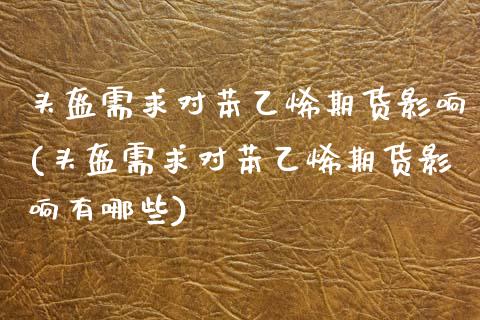 头盔需求对苯乙烯期货影响
(头盔需求对苯乙烯期货影
响有哪些)